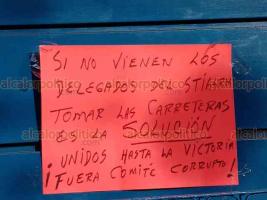 SI NO VIENEN LOS
DELEGADOS DEL STIASRM
TOMAR LAS CARRETERAS
ES LA SOLUCIÓN
UNIDOS HASTA LA VICTORIA
¡FUERA COMITÉ CORRUPTO!
alcalorpolitico.com